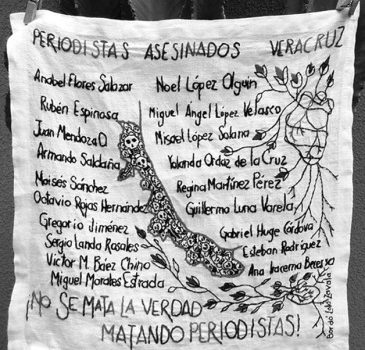 PERIODISTAS ASESINADOS VERACRUZ
Anabel Flores Salazar
Rubén Espinosa
Juan Mendoza D
Armando Saldaña
Moisés Sánchez
Octavio Rojas Hernández
Gregorio Jiménez
Sergio Landa Rosales
Víctor M. Báez Chino
Miguel Morales Estrada
Noel López Olguin
Miguel Ángel López Velasco
Misael López Solana
Yolanda Ordaz de la Cruz
Regina Martínez Pérez
Guillermo Luna Varela
Gabriel Huge Córdova
Esteban Rodríguez
Ana Iracema Becerra
¡NO SE MATA LA VERDAD
MATANDO PERIODISTAS!
Bordó